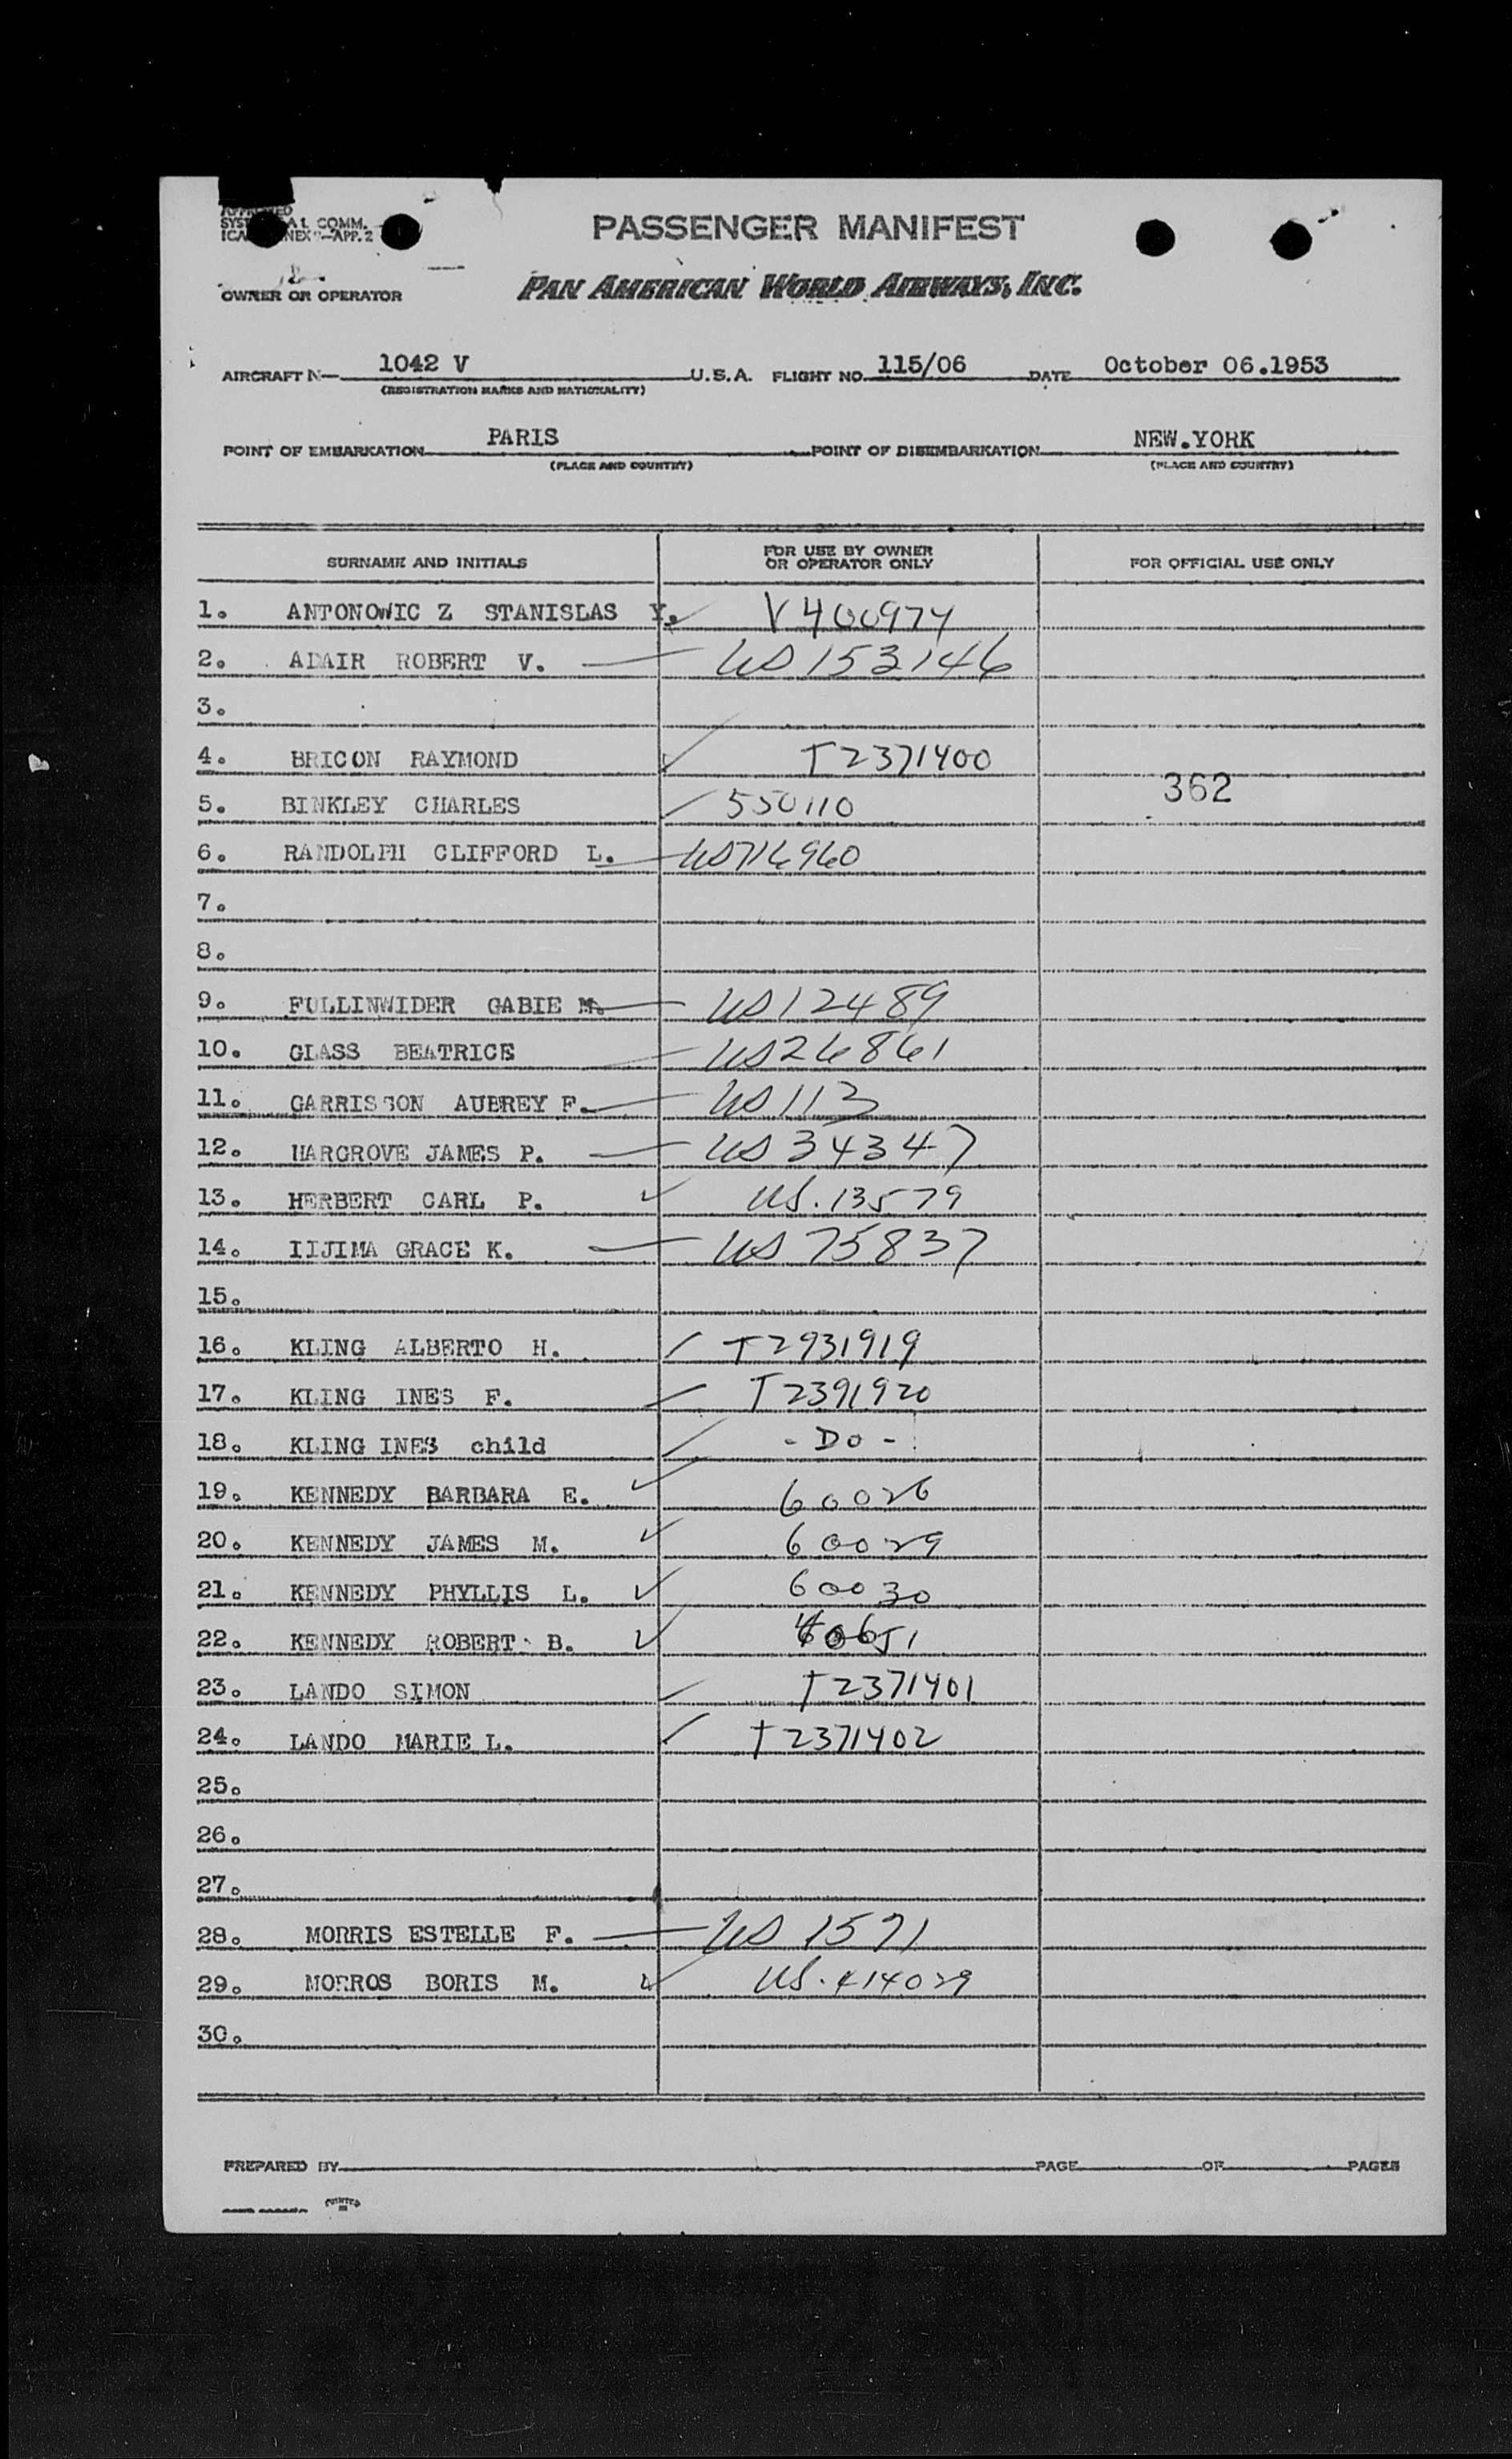 APPROVED
COMM.
APP. 2
PASSENGER MANIFEST
OWNER OR OPERATOR PAN AMERICAN WORLD AIRWAYS, INC.
AIRCRAFT N— 1042 V U.S.A. FLIGHT NO. 115/06 DATE October 06.1953
(REGISTRATION MARKS AND NATIONALITY)
POINT OF EMBARKATION PARIS POINT OF DISEMBARKATION NEW.YORK
(PLACE AND COUNTRY) (PLACE AND COUNTRY)
SURNAME AND INITIALS FOR USE BY OWNER OR OPERATOR ONLY FOR OFFICIAL USE ONLY
1. ANTONOWIC Z STANISLAS Y. V400974
2. ADAIR ROBERT V. US 153146
3.
4. BRICON RAYMOND T2371400
362
5. BINKLEY CHARLES 550110
6. RANDOLPH CLIFFORD L. US716960
7.
8.
9. FULLINWIDER GABIE M. US12489
10. GLASS BEATRICE US26861
11. GARRISSON AUBREY F. US113
12. HARGROVE JAMES P. US 34347
13. HERBERT CARL P. US.13579
14. IIJIMA GRACE K. US 75837
15.
16. KLING ALBERTO H. T2931919
17. KLING INES F. T2391920
18. KLING INES child - Do -
19. KENNEDY BARBARA E. 60026
20. KENNEDY JAMES M. 60029
21. KENNEDY PHYLLIS L. 60030
22. KENNEDY ROBERT B.
23. LANDO SIMON T2371401
24. LANDO MARIE L. T2371402
25.
26.
27.
28. MORRIS ESTELLE F. US 1571
29. MORROS BORIS M. US.414029
30.
PREPARED BY PAGE OF PAGES